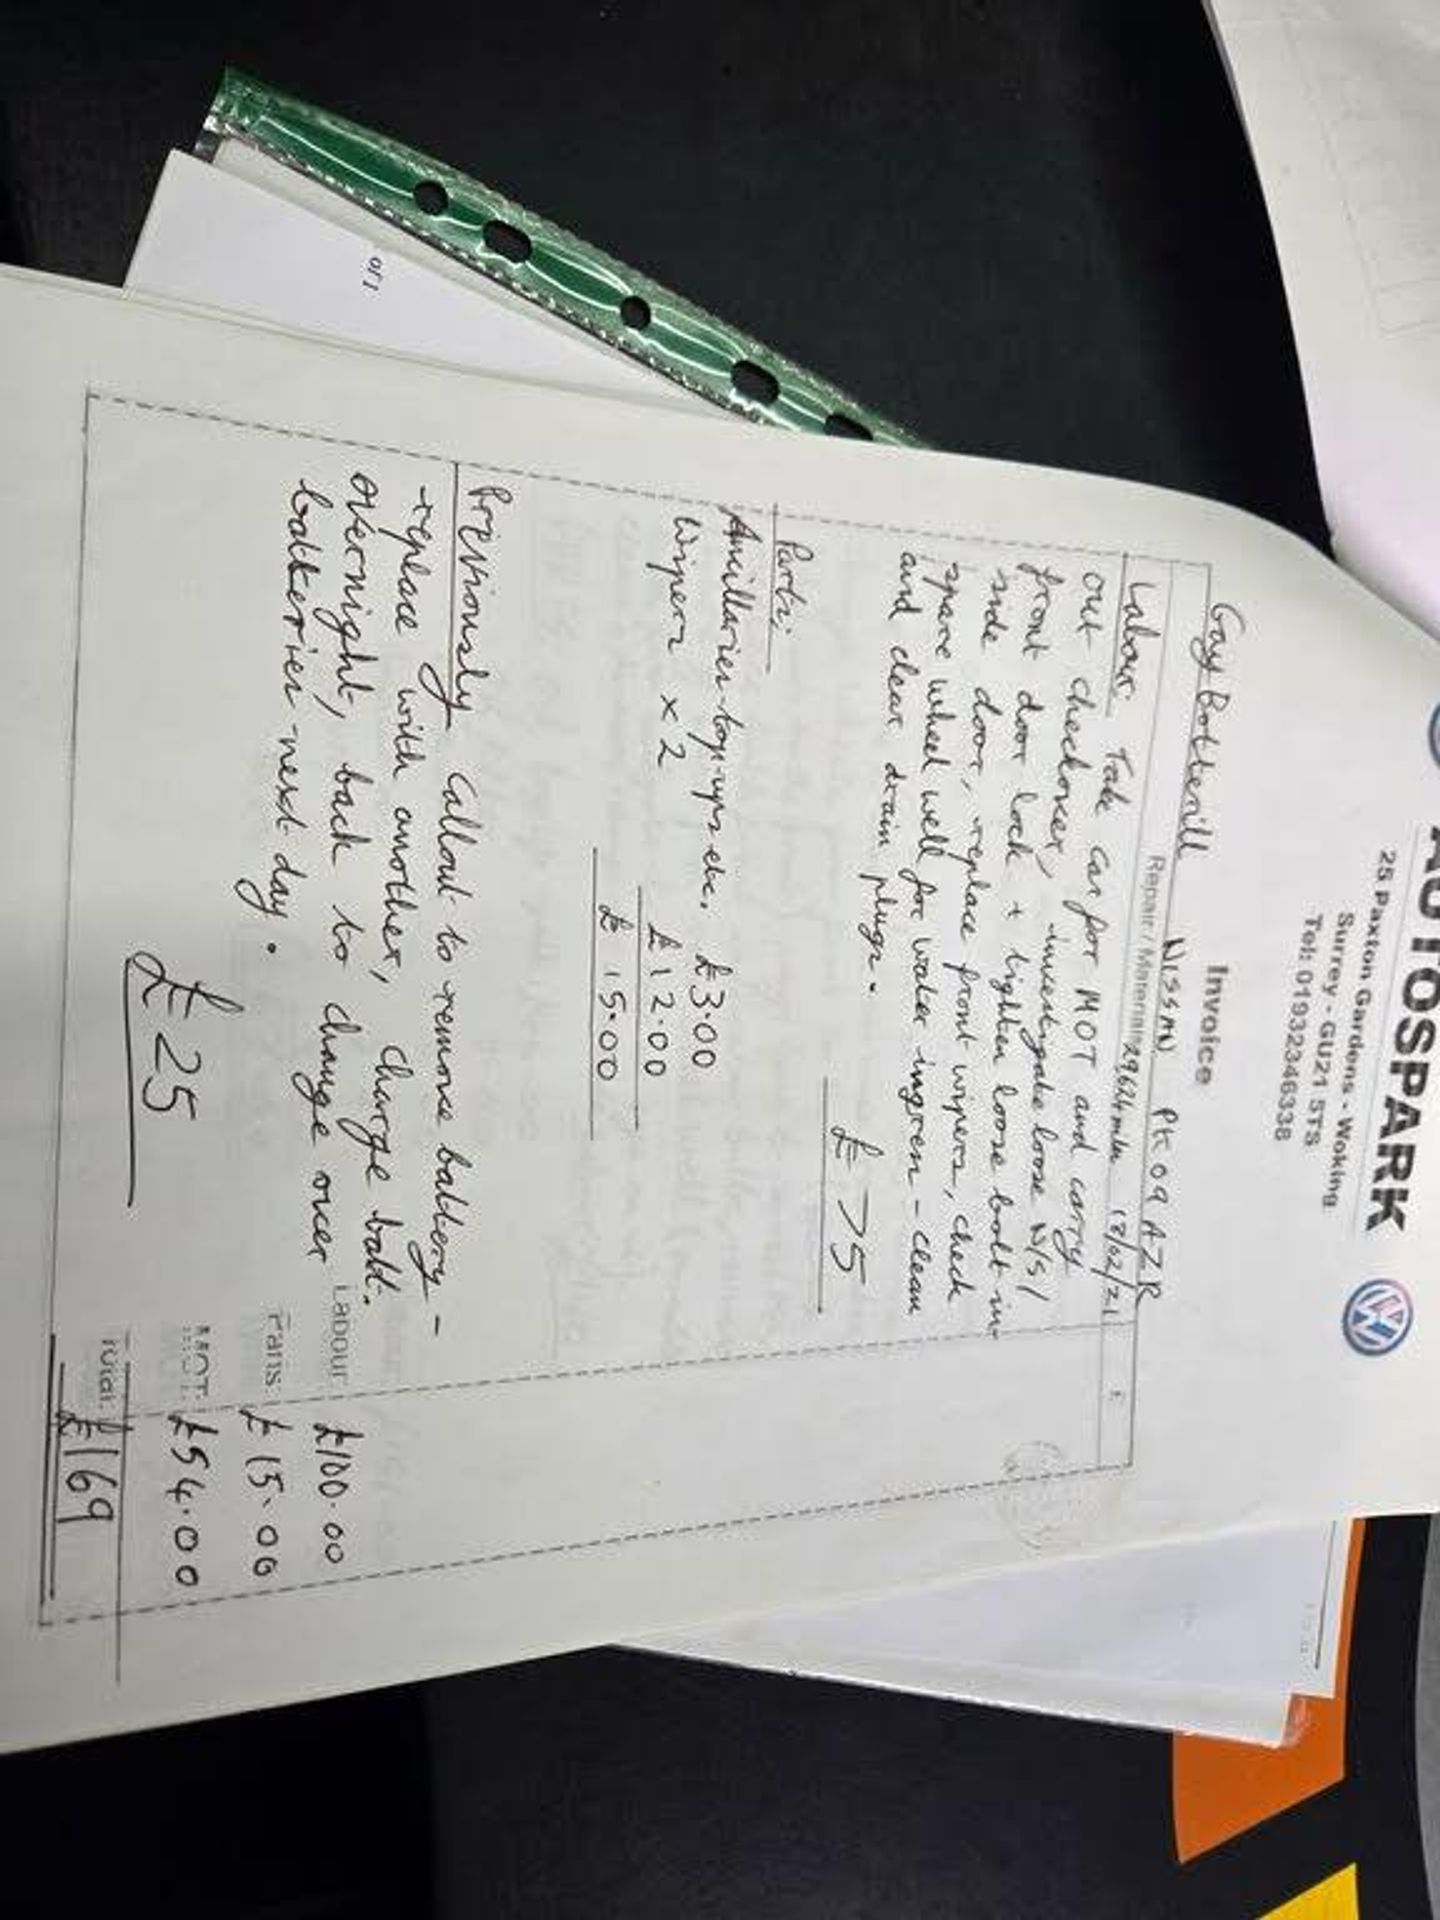 AUTOSPARK
25 Paxton Gardens - Woking
Surrey - GU21 5TS
Tel: 01932346338
Invoice
Gay Botterill NISSAN PK09 AZR
Repair / Materials 29626 mls 18/02/21 £
Labour: Take car for MOT and carry
out checkover, investigate loose N/S/
front door lock + tighten loose bolt in
side door, replace front wipers, check
spare wheel well for water ingress - clean
and clear drain plugs.
£75
Parts:
Ancillaries - top-ups etc. £3.00
Wipers x 2 £12.00
£15.00
Previously Callout to remove battery -
replace with another, charge batt.
overnight, back to change over
batteries next day.
£25
Labour: £100.00
Parts: £15.00
MOT: £54.00
Total: £169